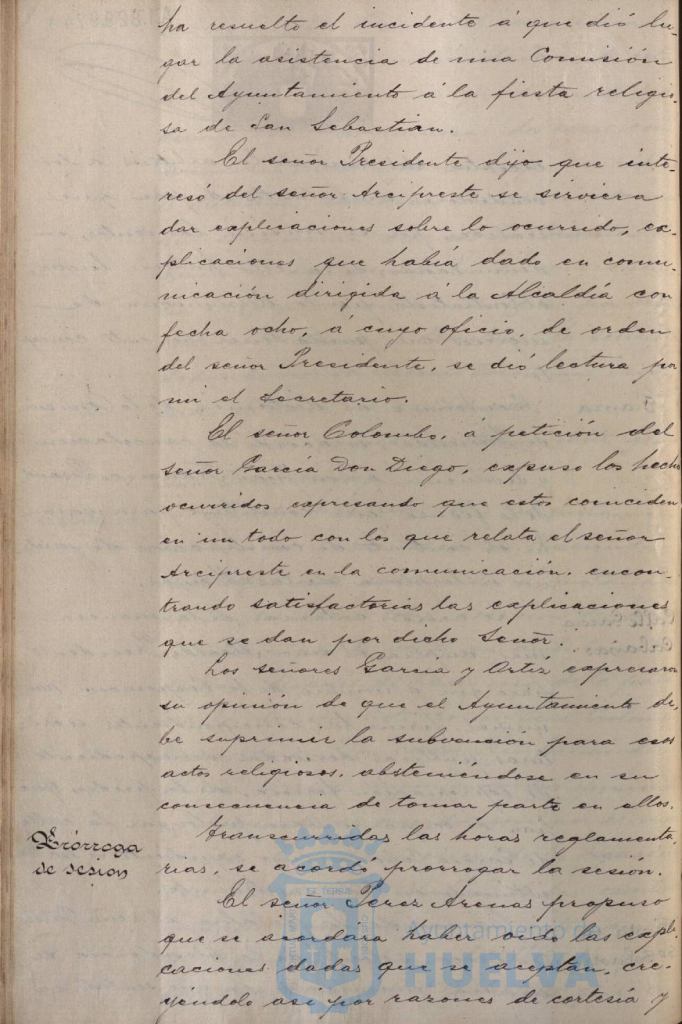 ha resuelto el incidente á que dió lu-
gar la asistencia de una Comisión
del Ayuntamiento á la fiesta religio-
sa de San Sebastian.
El señor Presidente dijo que inte-
resó del señor Arcipreste se sirviera
dar explicaciones sobre lo ocurrido, ex-
plicaciones que había dado en comu-
nicación dirigida á la Alcaldía con
fecha ocho, á cuyo oficio, de orden
del señor Presidente, se dió lectura por
mi el Secretario.
El señor Colombo, á petición del
señor García Don Diego, expuso los hechos
ocurridos expresando que estos coinciden
en un todo con los que relata el señor
Arcipreste en la comunicación, encon-
trando satisfactorias las explicaciones
que se dan por dicho Señor.
Los señores Garcia y Ortíz expresaron
su opinión de que el Ayuntamiento de-
be suprimir la subvención para esos
actos religiosos, absteniéndose en su
consecuencia de tomar parte en ellos.
Prórroga
de sesion
Transcurridas las horas reglamenta-
rias, se acordó prorrogar la sesión.
El señor Perez Arenas propuso
que se acordára haber oido las expli-
caciones dadas que se aceptan, cre-
yéndolo así por razones de cortesía y
Ayuntamiento de
HUELVA